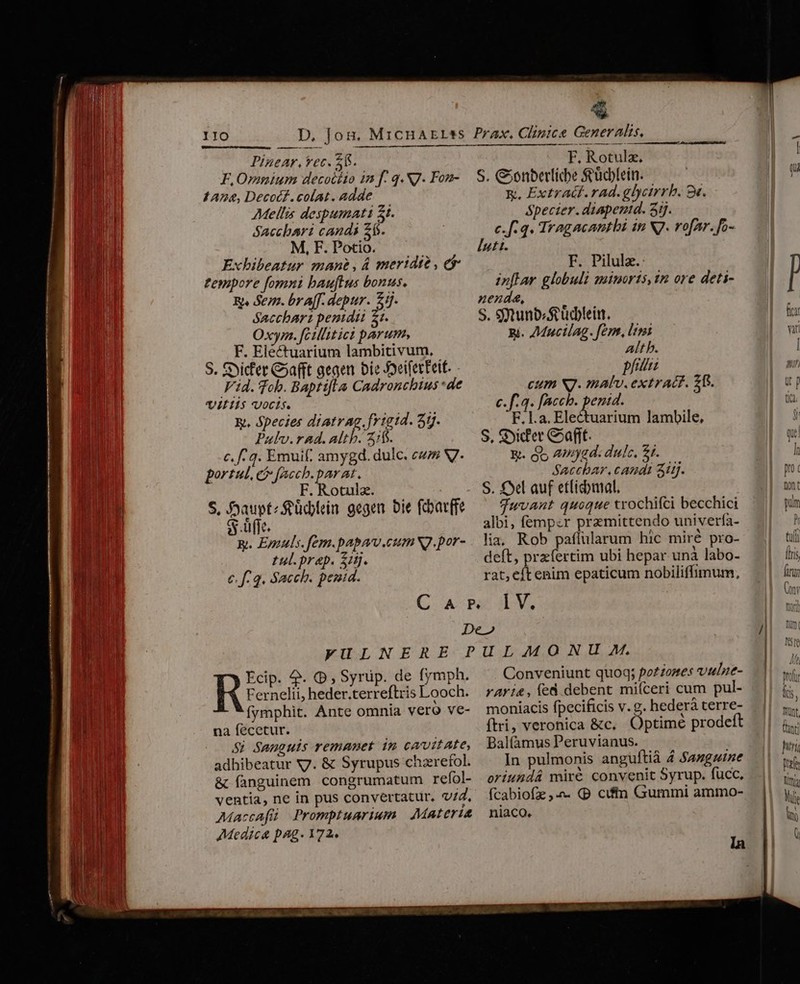 110 D. Joh. Michaelis Prax. Clinicæ Generalis.
Pinear. rec. ℥ß.
F. Omnium decoctio in f. q. ▽. Fon-
tana, Decoct. colat. adde
Mellis despumati ℥i.
Sacchari candi ℥ß.
M. F. Potio.
Exhibeatur manè, à meridiè, &
tempore somni haustus bonus.
℞. Sem. brass. depur. ʒij.
Sacchari penidii ℥i.
Oxym. scillitici parum,
F. Electuarium lambitivum.
S. Dicker Safft gegen die Heiserkeit.
Vid. Joh. Baptista Cadronchius de
vitiis vocis.
℞. Species diatrag. frigid. ʒij.
Pulv. rad. alth. ʒiß.
c. f. q. Emuls. amygd. dulc. cum ▽.
portul. & sacch. parat.
F. Rotulæ.
S. Haupt-Küchlein gegen die scharffe
Flüsse.
℞. Emuls. sem. papav. cum ▽. por-
tul. prep. ʒiij.
c. f. q. Sacch. penid.
F. Rotulæ.
S. Sonderliche Küchlein.
℞. Extract. rad. glycirrh. ℈i.
Specier. diapenid. ʒij.
c. f. q. Tragacanthi in ▽. rosar. so-
luti.
F. Pilulæ.
instar globuli minoris, in ore deti-
nendæ,
S. Mund-Küchlein.
℞. Mucilag. sem. lini
alth.
psillii
cum ▽. malv. extract. ℥ß.
c. f. q. sacch. penid.
F. l. a. Electuarium lambile,
S. Dicker Safft.
℞. Oo amygd. dulc. ℥i.
Sacchar. candi ʒiij.
S. Oel auf etlichmal.
Juvant quoque trochisci becchici
albi, semper præmittendo universa-
lia. Rob passularum hic mirè pro-
dest, præsertim ubi hepar unà labo-
rat, est enim epaticum nobilissimum.
Cap. IV.
De
VULNERE PULMONUM.
Recip. ♀. ☉, Syrup. de symph.
Fernelii, heder. terrestris Looch.
symphit. Ante omnia verò ve-
na secetur.
Si Sanguis remanet in cavitate,
adhibeatur ▽. & Syrupus chærefol.
& sanguinem congrumatum resol-
ventia, ne in pus convertatur. vid.
Maccasii Promptuarium Materiæ
Medicæ pag. 172.
Conveniunt quoq; potiones vulne-
rariæ, sed debent misceri cum pul-
moniacis specificis v. g. hederâ terre-
stri, veronica &c. Optimè prodest
Balsamus Peruvianus.
In pulmonis angustiâ à Sanguine
oriundâ mirè convenit Syrup. succ.
scabiosæ, cum Gummi ammo-
niaco.
In